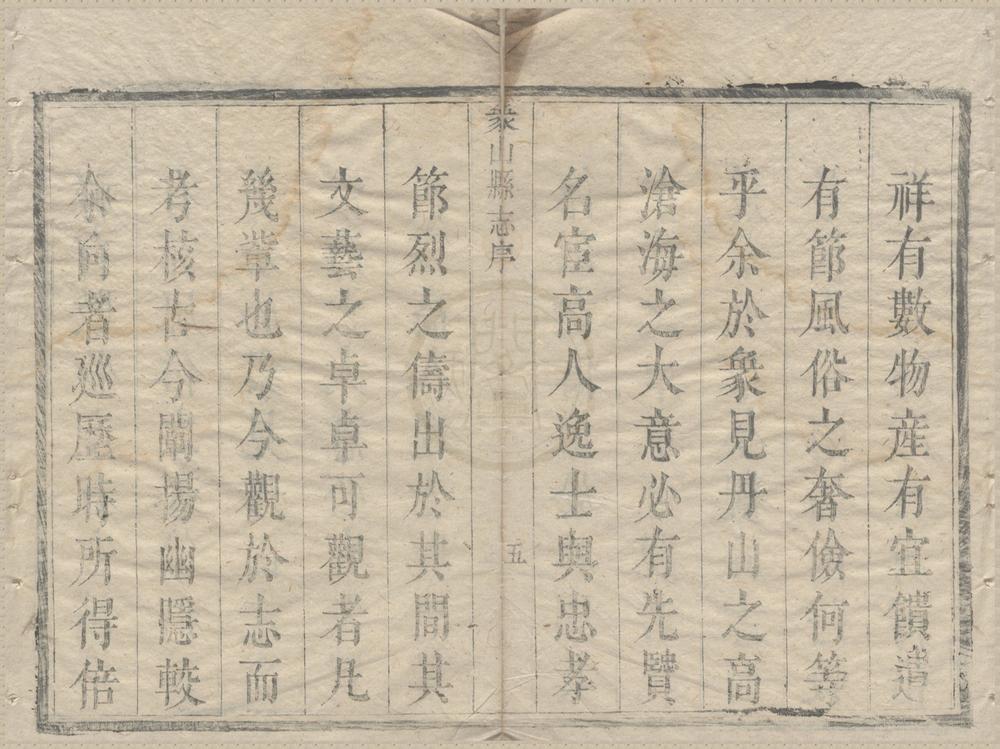 祥有數物産有宜饋遺
有節風俗之奢儉何等
乎余於象見丹山之高
滄海之大意必有先賢
名宦高人逸士與忠孝
象山縣志序
五
節烈之儔出於其間其
文藝之卓卓可觀者凡
幾輩也乃今觀於志而
考核古今闡揚幽隱較
余向者廵歷時所得倍